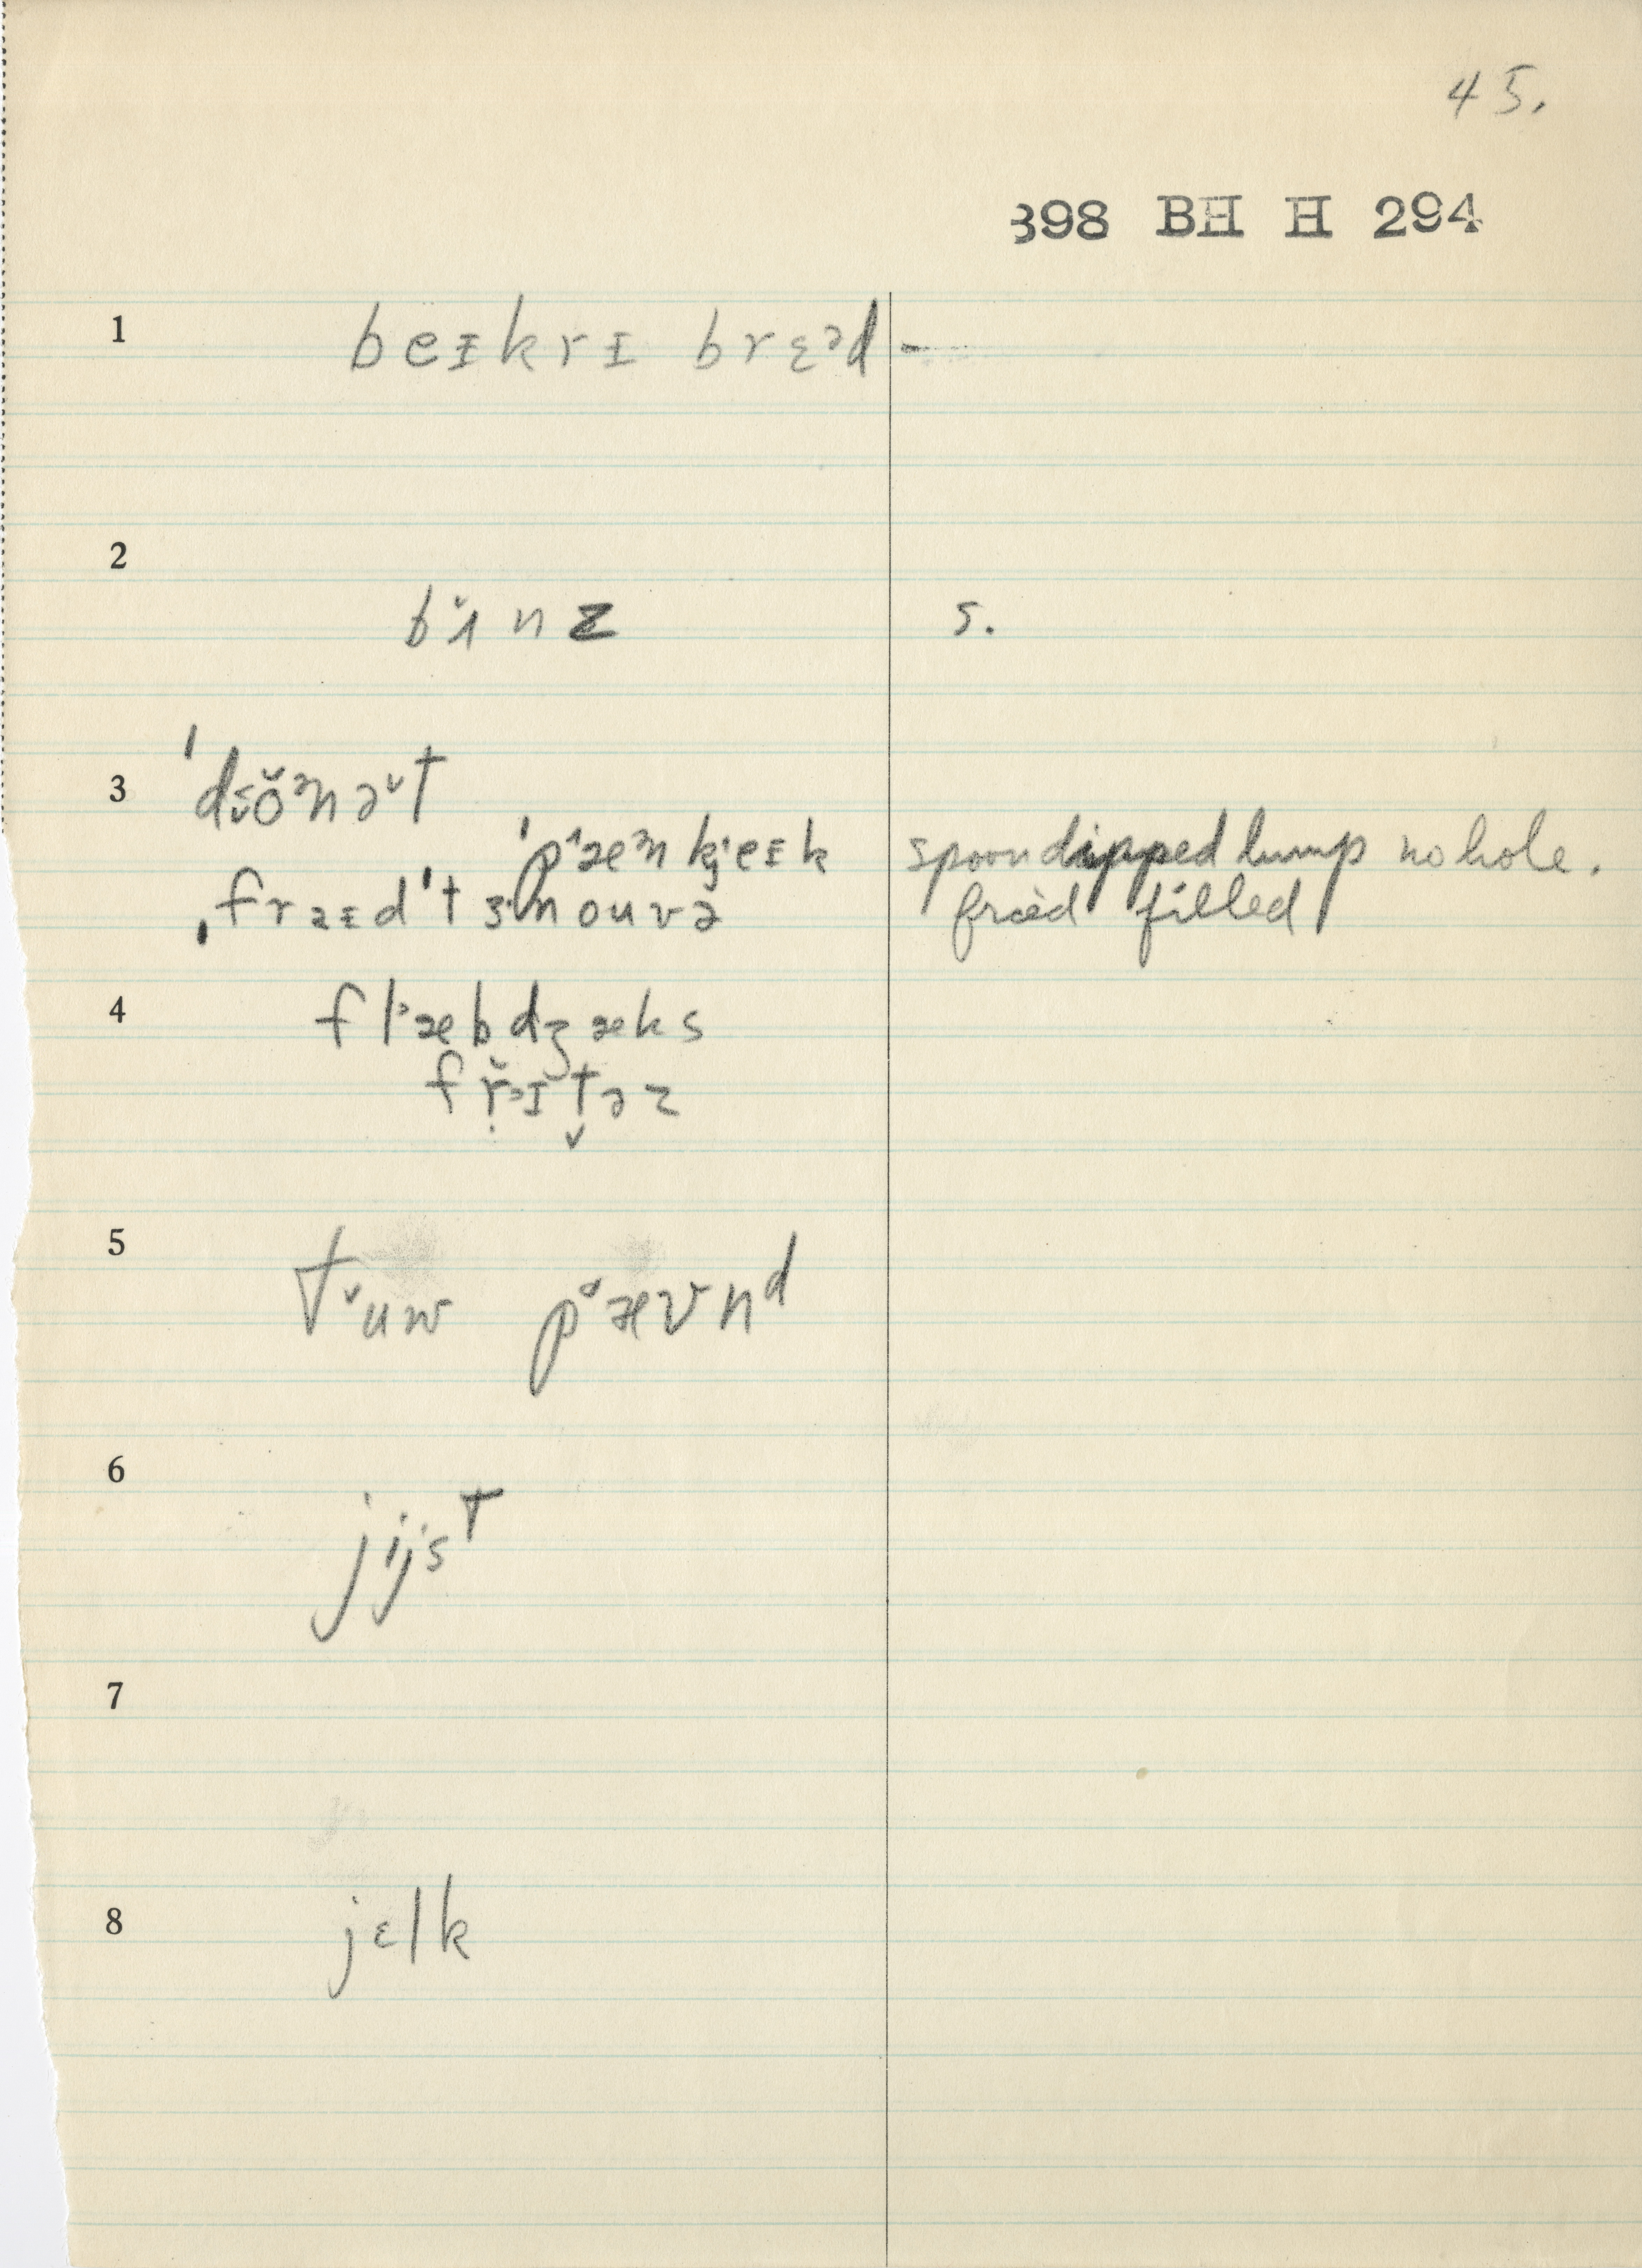 45.
398 BH H 294
1 beɪkrɪ brɛᵊd -
2
bɨ̌nz s.
3 ˈdɵ̌ᵊnəˇt
ˈpᶦæᵊnkjeɪk spoon dipped lump no hole.
ˌfraɪd ˈtɜnouvə fried filled
4 flᵊæbdʒæks
frᵊɪtəz
5 tˇuw pᵊævnᵈ
6 jijsᵀ
7
8 jɛlk